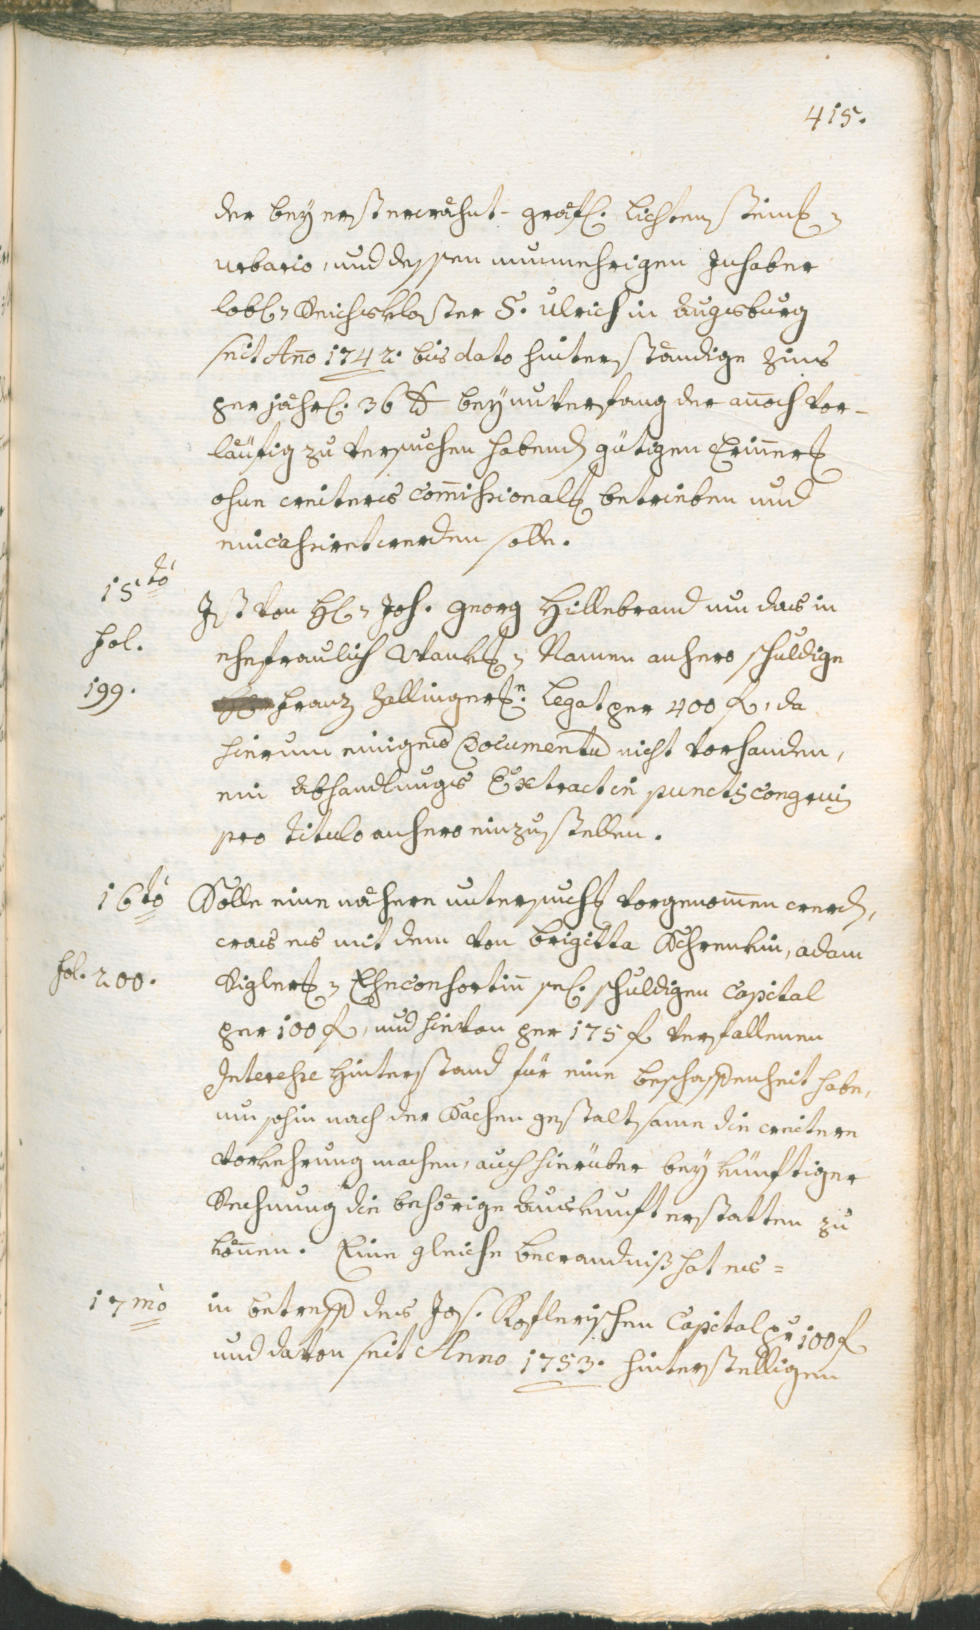 415.
der beÿ ersterwähnt-gräfl. Lichtenstein:
urbario, und dessen nunmehrigen Inhaber
lobl: Reichskloster S. Ulrich in Augsburg
seit Ano 1742. bis dato hinterständige Zins
per jährl. 36 beÿ unterfang der anoch vor-
läufig zu versuchen habend gütigen Erinner
ohne weiters comissional betrieben und
eincassiret werden solle.
15tò
fol.
199.
Ist von H: Joh. Georg Hillebrand um das in
ehefraulich Namen anhero schuldige
Franz Zallinger: Legat per 400 f, da
hierum einiges Document nicht vorhanden,
ein Abhandlungs Extract in puncto congrui
pro titulo anhero einzustellen.
16tò
fol. 200.
Solle eine nähere untersuch vorgenomen werd,
was es mit dem von Brigitta Schrenkin, Adam
Sigler: Eheconsortin sel. schuldigen Capital
per 100 f, und hievon per 175 f verfallenen
Interesse Hinterstand für eine beschaffenheit habe,
um sohin nach der Sachen gestaltsame die weitere
vorkehrung machen, auch hierüber beÿ künftiger
Rechnung die behörige Auskunft erstatten zu
könen. Eine gleiche bewandniß hat es=
17mò
in betreff des Jos. Koflerischen Capital per 100 f
und davon seit Anno 1753. hinterstelligen